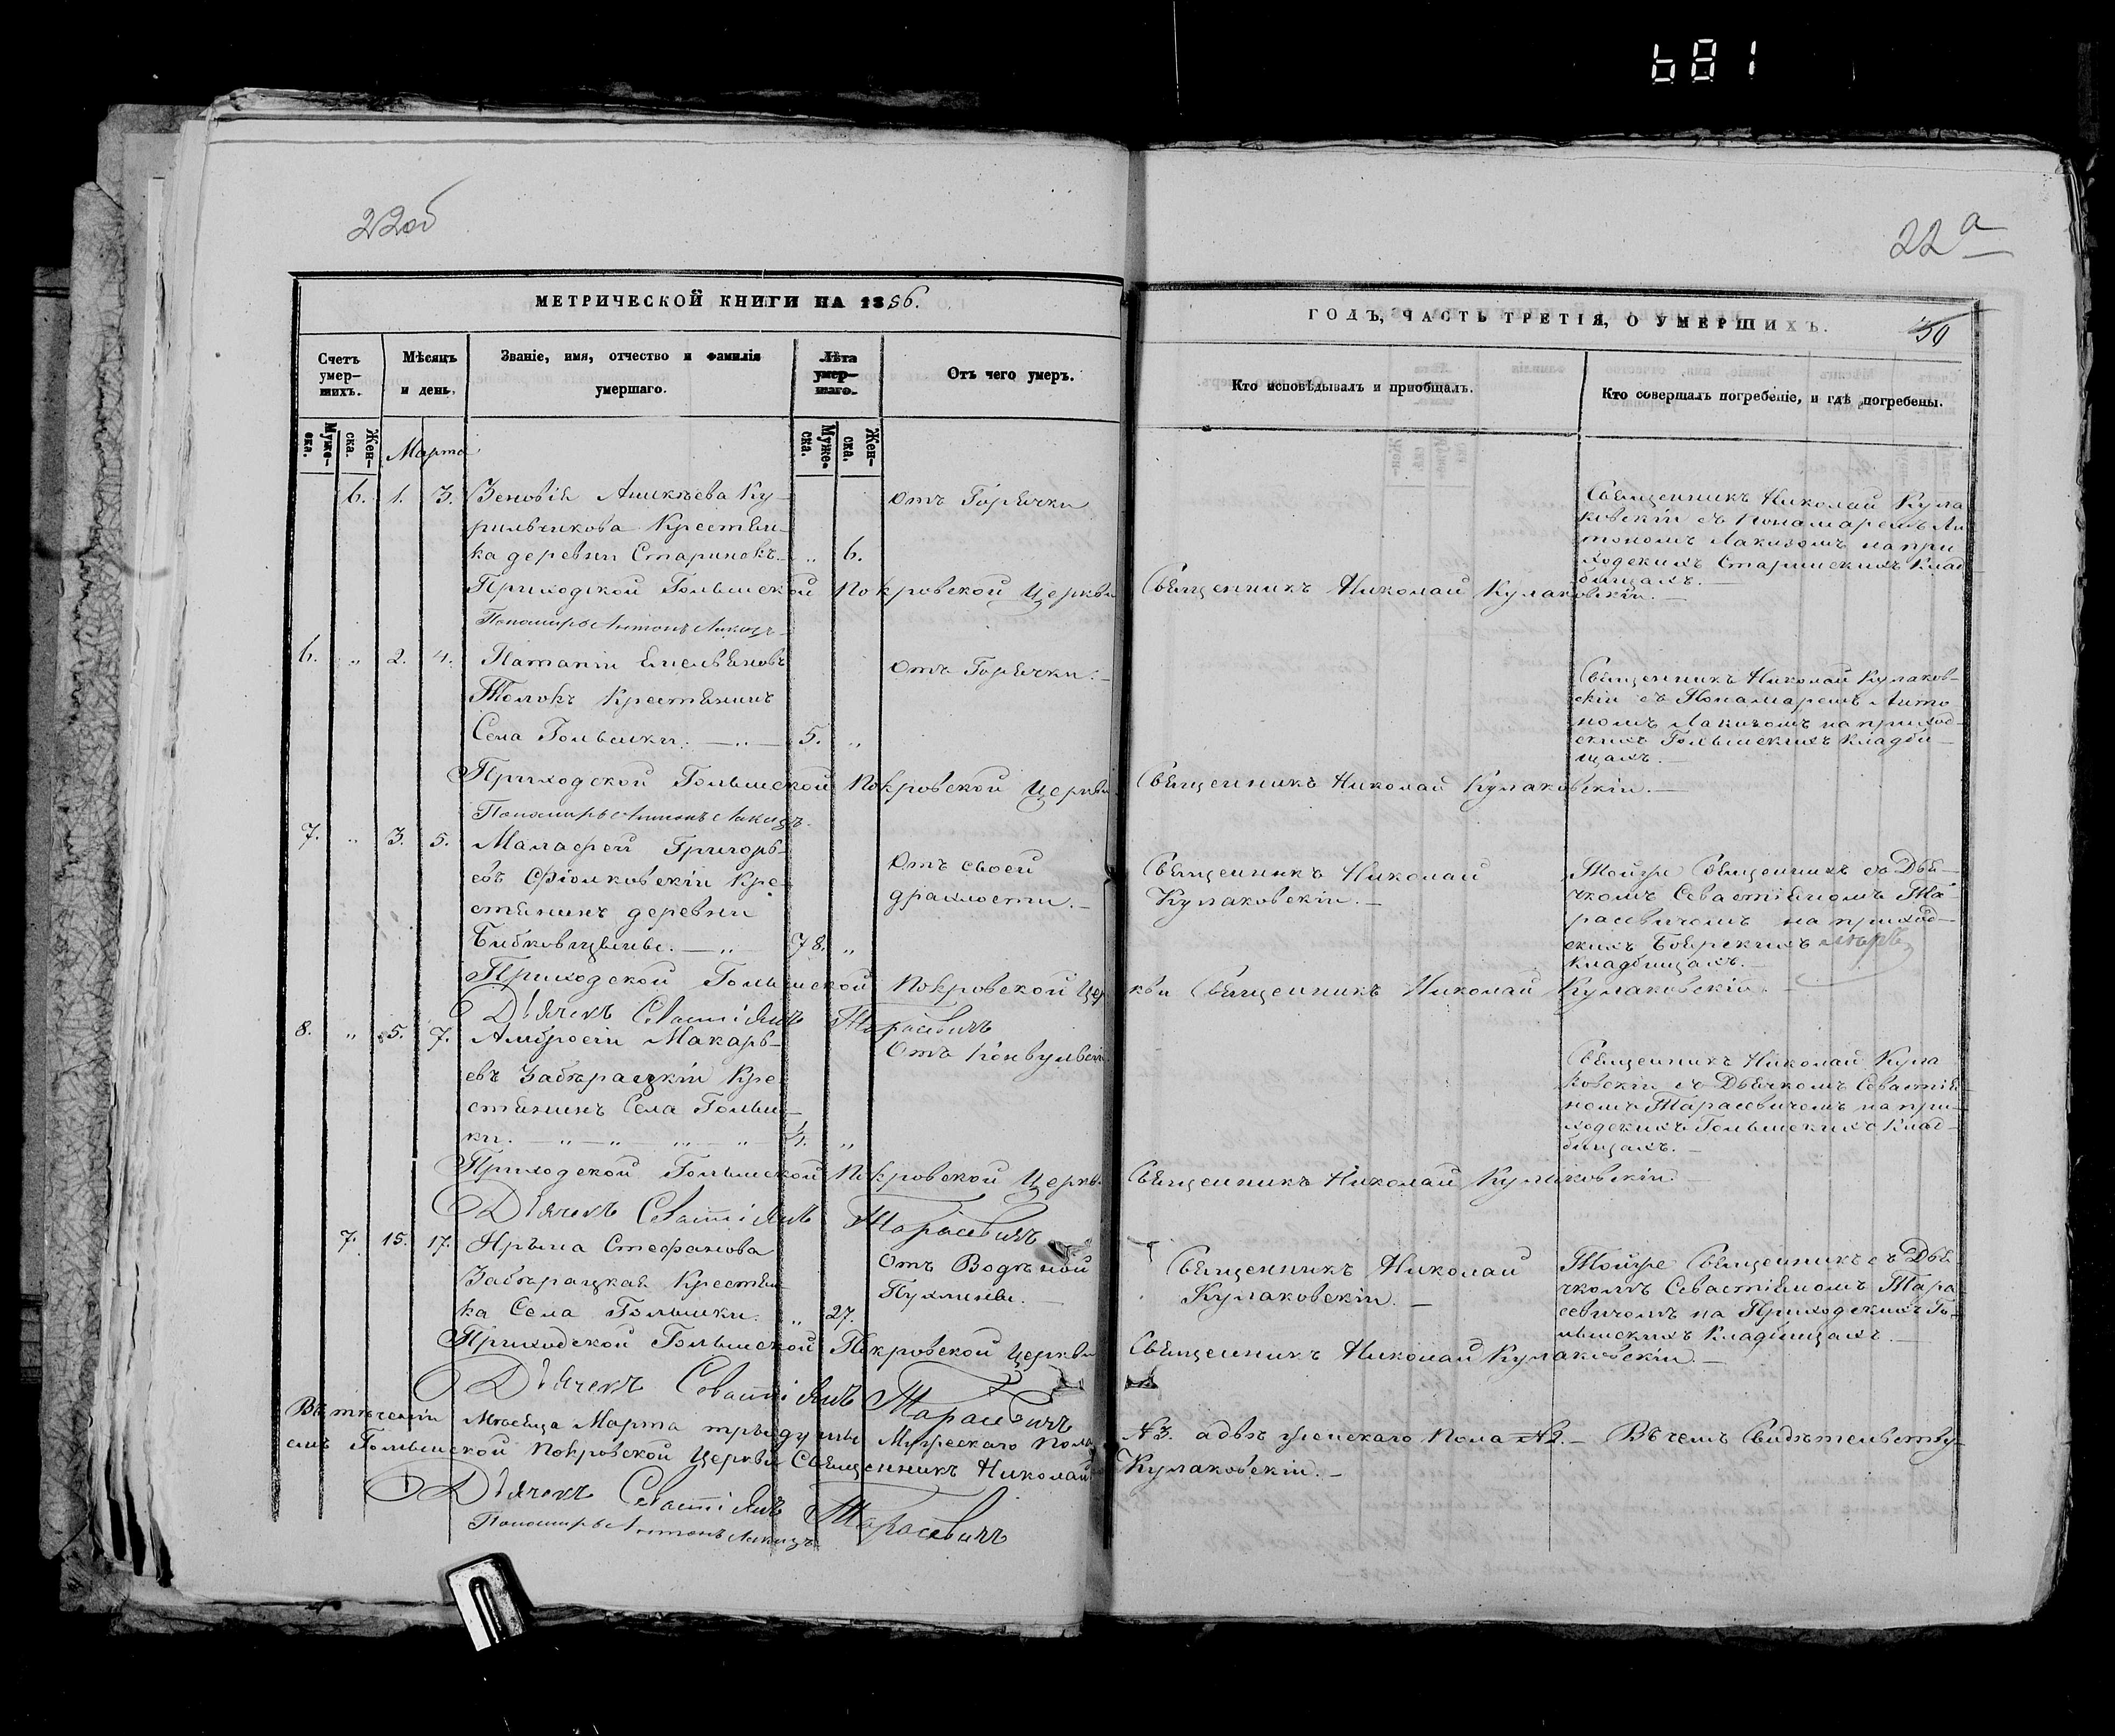 681
22об
22а
МЕТРИЧЕСКОЙ КНИГИ НА 1856.
ГОДЪ, ЧАСТЬ ТРЕТІЯ, О УМЕРШИХЪ.
Счетъ умер-шихъ.
Мѣсяцъ и день.
Званіе, имя, отчество и фамилія умершаго.
Лѣта умер-шаго.
Отъ чего умеръ.
Кто исповѣдывалъ и пріобщалъ.
Кто совершалъ погребеніе, и гдѣ погребены.
Муже-ска.
Жен-ска.
Марта
Муже-ска.
Жен-ска.
6. 1. 3.
Зеновія
рильчикова Крестьян-
ка деревни Старинокъ. „ 6.
Отъ Горячки
Священникъ Николай Кула
ковскій съ Пономаремъ Ан
тономъ на при
ходскихъ Старинскихъ Клад
бищахъ.
Приходской Голынской Покровской Церкви Священникъ Николай Кулаковскій.
Пономарь Антонъ
6. „ 2. 4.
Емельяновъ
Толокъ Крестьянинъ
Села Голынки. 5. „
Отъ Горячки.
Священникъ Николай Кулаков-
скій съ Пономаремъ Анто
номъ на приход-
скихъ Голынскихъ кладби-
щахъ.
Приходской Голынской Покровской Церкви Священникъ Николай Кулаковскій.
Пономарь Антонъ
7. „ 3. 5.
Малафей Григорь-
евъ Фіолковскій Кре-
стьянинъ деревни
78. „
Отъ своей
драхлости.
Священникъ Николай
Кулаковскій.
Тойже Священникъ съ Дья-
чкомъ Севастіяномъ Та-
расевичомъ на приход-
скихъ
Кладбищахъ.
Приходской Голынской Покровской Церкви Священникъ Николай Кулаковскій
Дьячекъ Севастіянъ Тарасевичъ
8. „ 5. 7.
Амвросій Макарь-
евъ Забѣрацкій Кре
стьянинъ Села Голын-
ки. 4. „
Отъ Конвульсіи
Священникъ Николай Кула
ковскій съ Дьячкомъ Севастія-
номъ Тарасевичомъ на при-
ходскихъ Голынскихъ Клад-
бищахъ.
Приходской Голынской Покровской Церкви Священникъ Николай Кулаковскій
Дьячекъ Севастіянъ Тарасевичъ
7. 15. 17.
Ирына Стефанова
Забѣрацкая Крестьян-
ка Села Голынки. „ 27.
Отъ Водяной
Пухлины.
Священникъ Николай
Кулаковскій.
Тойже Священникъ съ Дья-
чкомъ Севастіяномъ Тара
севичомъ на Приходскихъ Го-
лынскихъ Кладбищахъ.
Приходской Голынской Покровской Церкви Священникъ Николай Кулаковскій.
Дьячекъ Севастіянъ Тарасевичъ
Мѣсяца Марта Мужескаго пола №3. а двѣ женскаго пола №2. Въ чемъ Свидѣтельству-
емъ Голынской Покровской Церкви Священникъ Николай Кулаковскій.
Дьячекъ Севастіянъ Тарасевичъ
Пономарь Антонъ